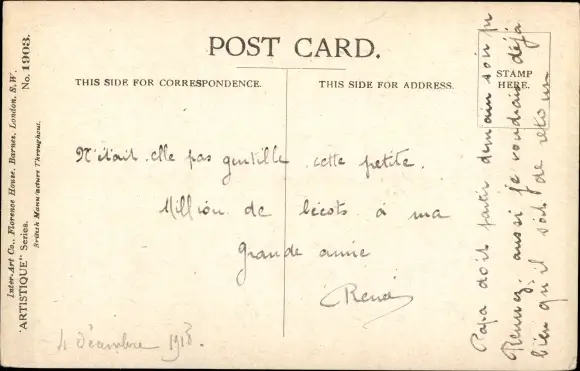 POST CARD.
THIS SIDE FOR CORRESPONDENCE.
THIS SIDE FOR ADDRESS.
STAMP
HERE.
N'était elle pas gentille cette petite.
Million de bécots à ma
grande amie
René
4 décembre 1918.
Papa doit partir demain soir pr
Rennes, aussi je voudrais déjà
bien qu'il soit de retour
Inter-Art Co., Florence House, Barnes, London, S.W.
"ARTISTIQUE" Series. No. 1903.
British Manufacture Throughout.